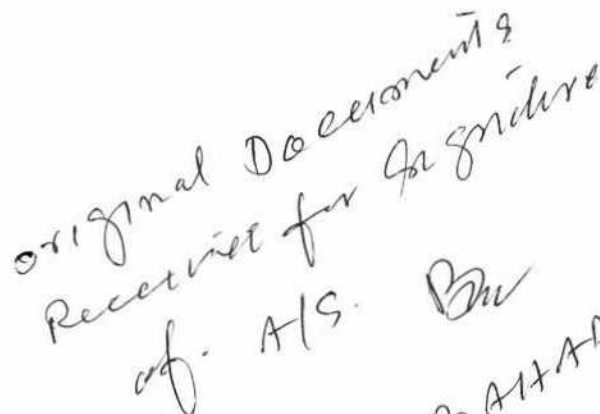 original Documents
Received for Signature
of. A/S.